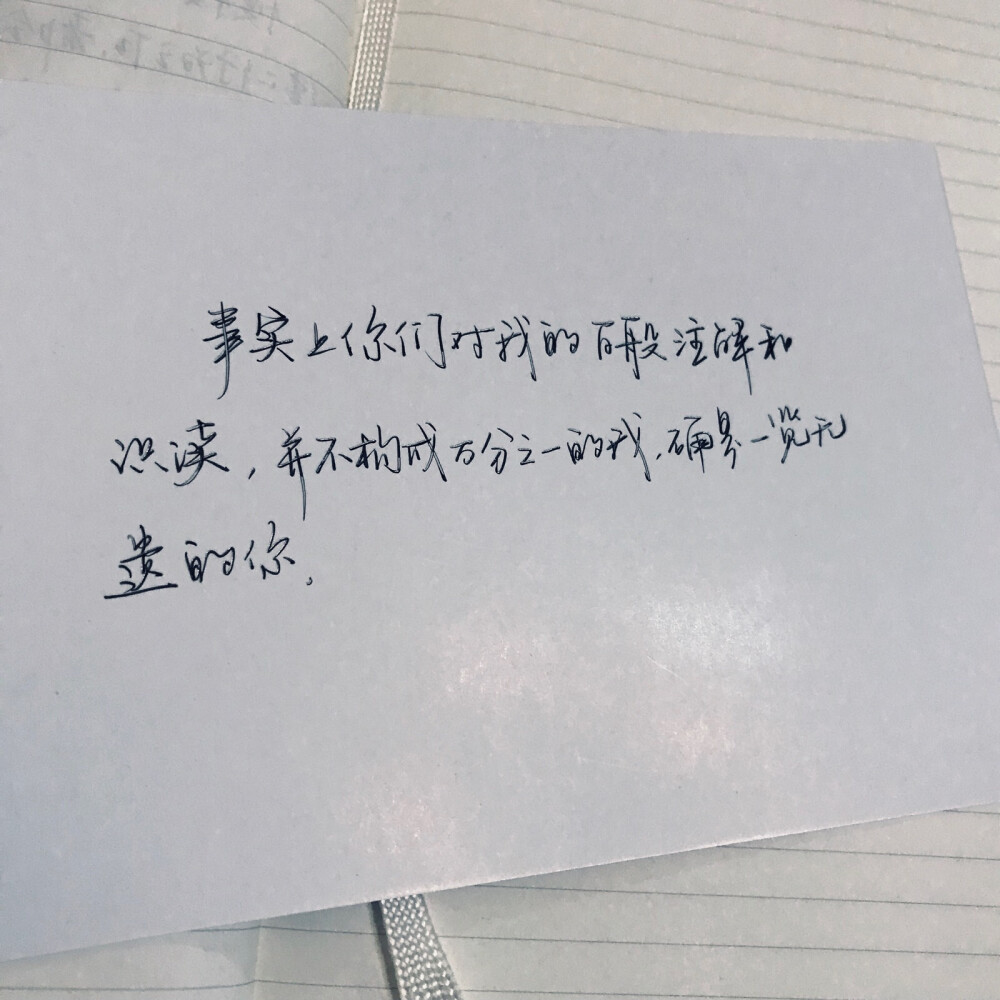 事实上你们对我的百般注解和
识读,并不构成万分之一的我,确是一览无
遗的你.